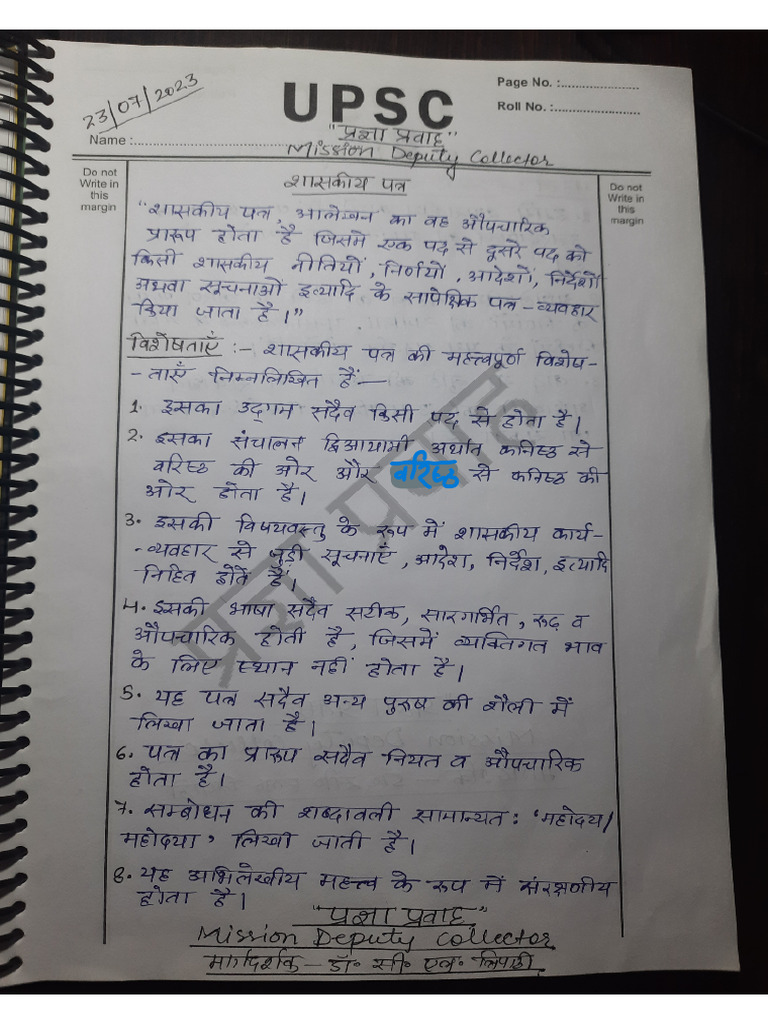 23/07/2023
UPSC
Page No. :........................
Roll No. :........................
Name :........................
"प्रज्ञा प्रवाह"
Mission Deputy Collector
Do not
Write in
this
margin
Do not
Write in
this
margin
शासकीय पत्र
"शासकीय पत्र, आलेखन का वह औपचारिक
प्रारूप होता है जिसमे एक पद से दूसरे पद को
किसी शासकीय नीतियों, निर्णयों, आदेशों, निर्देशों
अथवा सूचनाओं इत्यादि के सापेक्षिक पत्र-व्यवहार
किया जाता है।"
विशेषताएँ :- शासकीय पत्र की महत्त्वपूर्ण विशेष-
-ताएँ निम्नलिखित हैं—
1. इसका उद्गम सदैव किसी पद से होता है।
2. इसका संचालन द्विआयामी अर्थात कनिष्ठ से
वरिष्ठ की ओर और वरिष्ठ से कनिष्ठ की
ओर होता है।
3. इसकी विषयवस्तु के रूप में शासकीय कार्य-
-व्यवहार से जुड़ी सूचनाएँ, आदेश, निर्देश, इत्यादि
निहित होतें हैं।
4. इसकी भाषा सदैव सटीक, सारगर्भित, रूढ़ व
औपचारिक होती है, जिसमें व्यक्तिगत भाव
के लिए स्थान नहीं होता है।
5. यह पत्र सदैव अन्य पुरुष की शैली में
लिखा जाता है।
6. पत्र का प्रारूप सदैव नियत व औपचारिक
होता है।
7. सम्बोधन की शब्दावली सामान्यत: 'महोदय/
महोदया' लिखी जाती है।
8. यह अभिलेखीय महत्त्व के रूप में संरक्षणीय
होता है।
"प्रज्ञा प्रवाह"
Mission Deputy Collector
मार्गदर्शक - डॉ॰ सी॰ एल॰ त्रिपाठी
प्रज्ञा प्रवाह